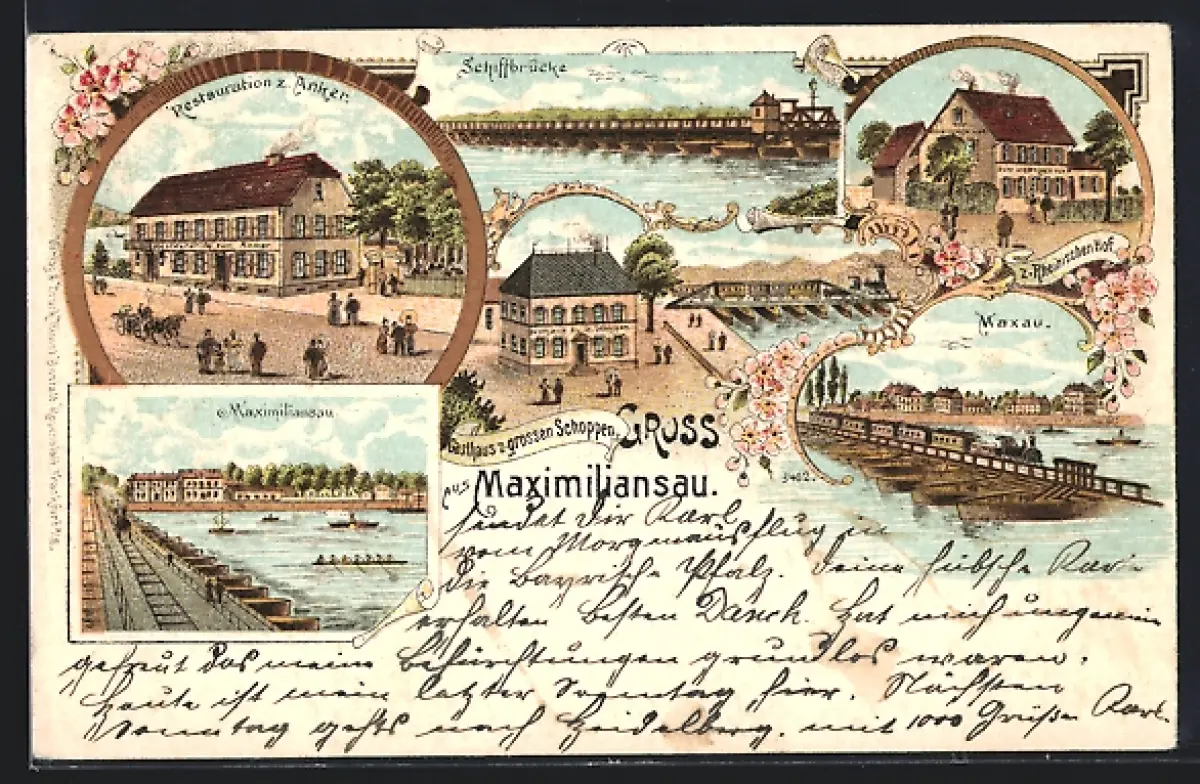 Restauration z. Anker.
Schiffbrücke
z. Rheinischen Hof.
Maxau.
Maximiliansau
Gasthaus z. grossen Schoppen.
GRUSS
aus Maximiliansau.
3402.
sendet dir Karl
vom Morgenausflug in
die Bayrische Pfalz. Deine hübsche Kar-
erhalten besten Danck. Hat mich ungemein
gefreut das meine Befürchtungen grundlos waren.
Heute ist mein letzter Sonntag hier. Nächsten
Sonntag gehts nach Heidelberg. mit 1000 Grüße Karl.